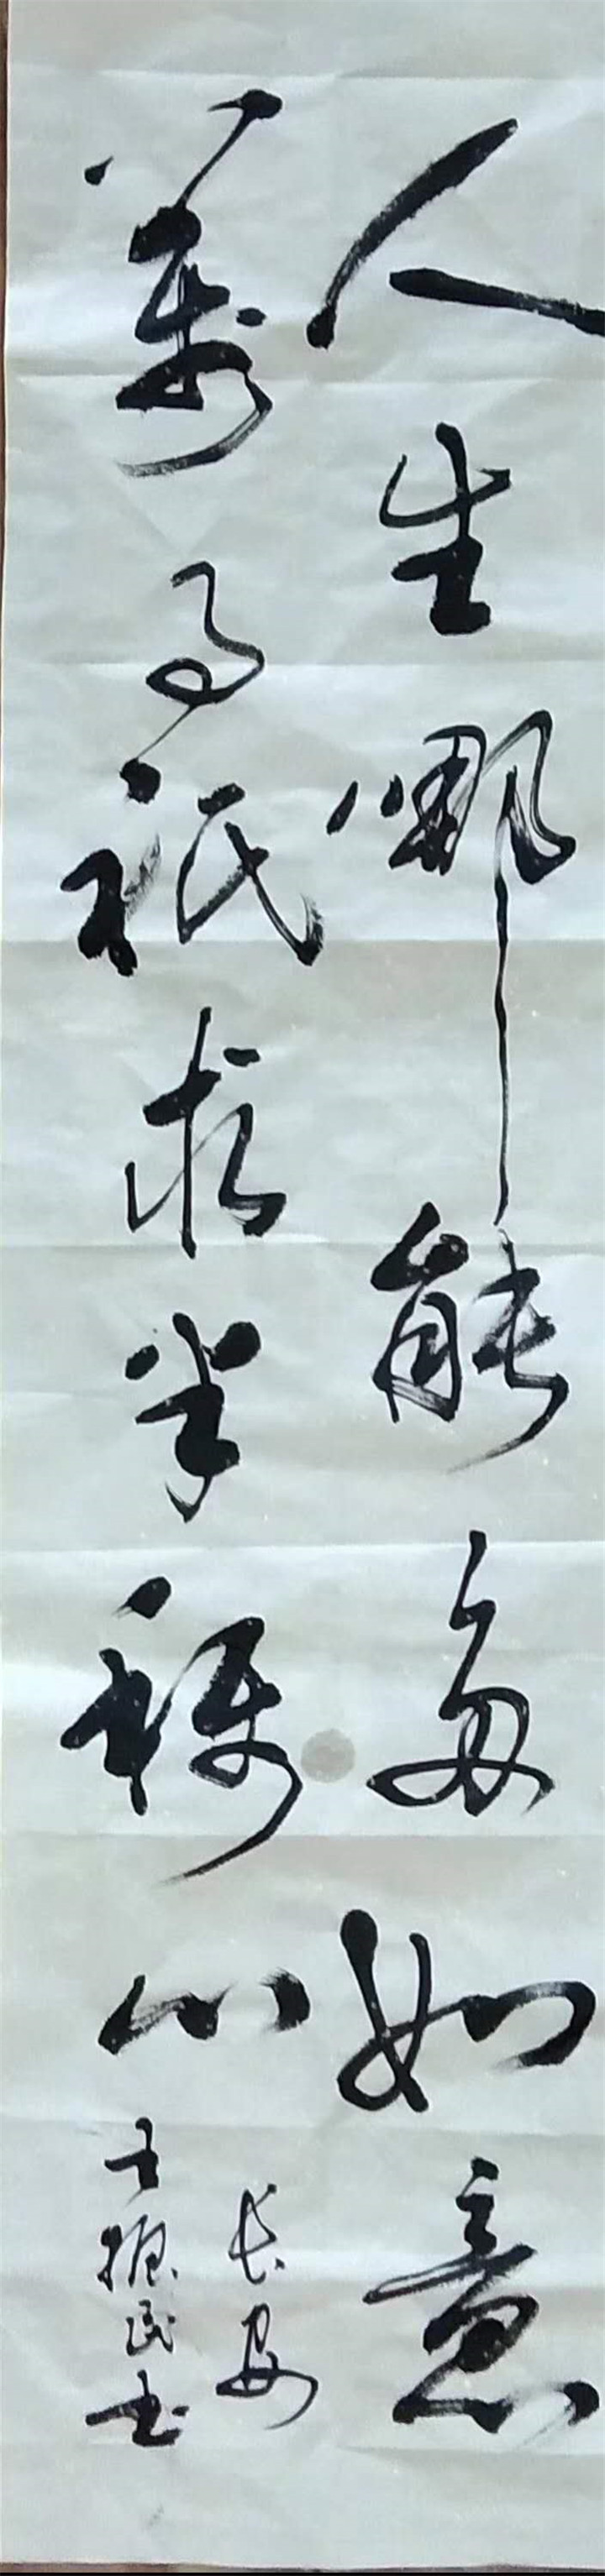 人生哪能多如意
萬事祇求半稱心
長安
王振民书